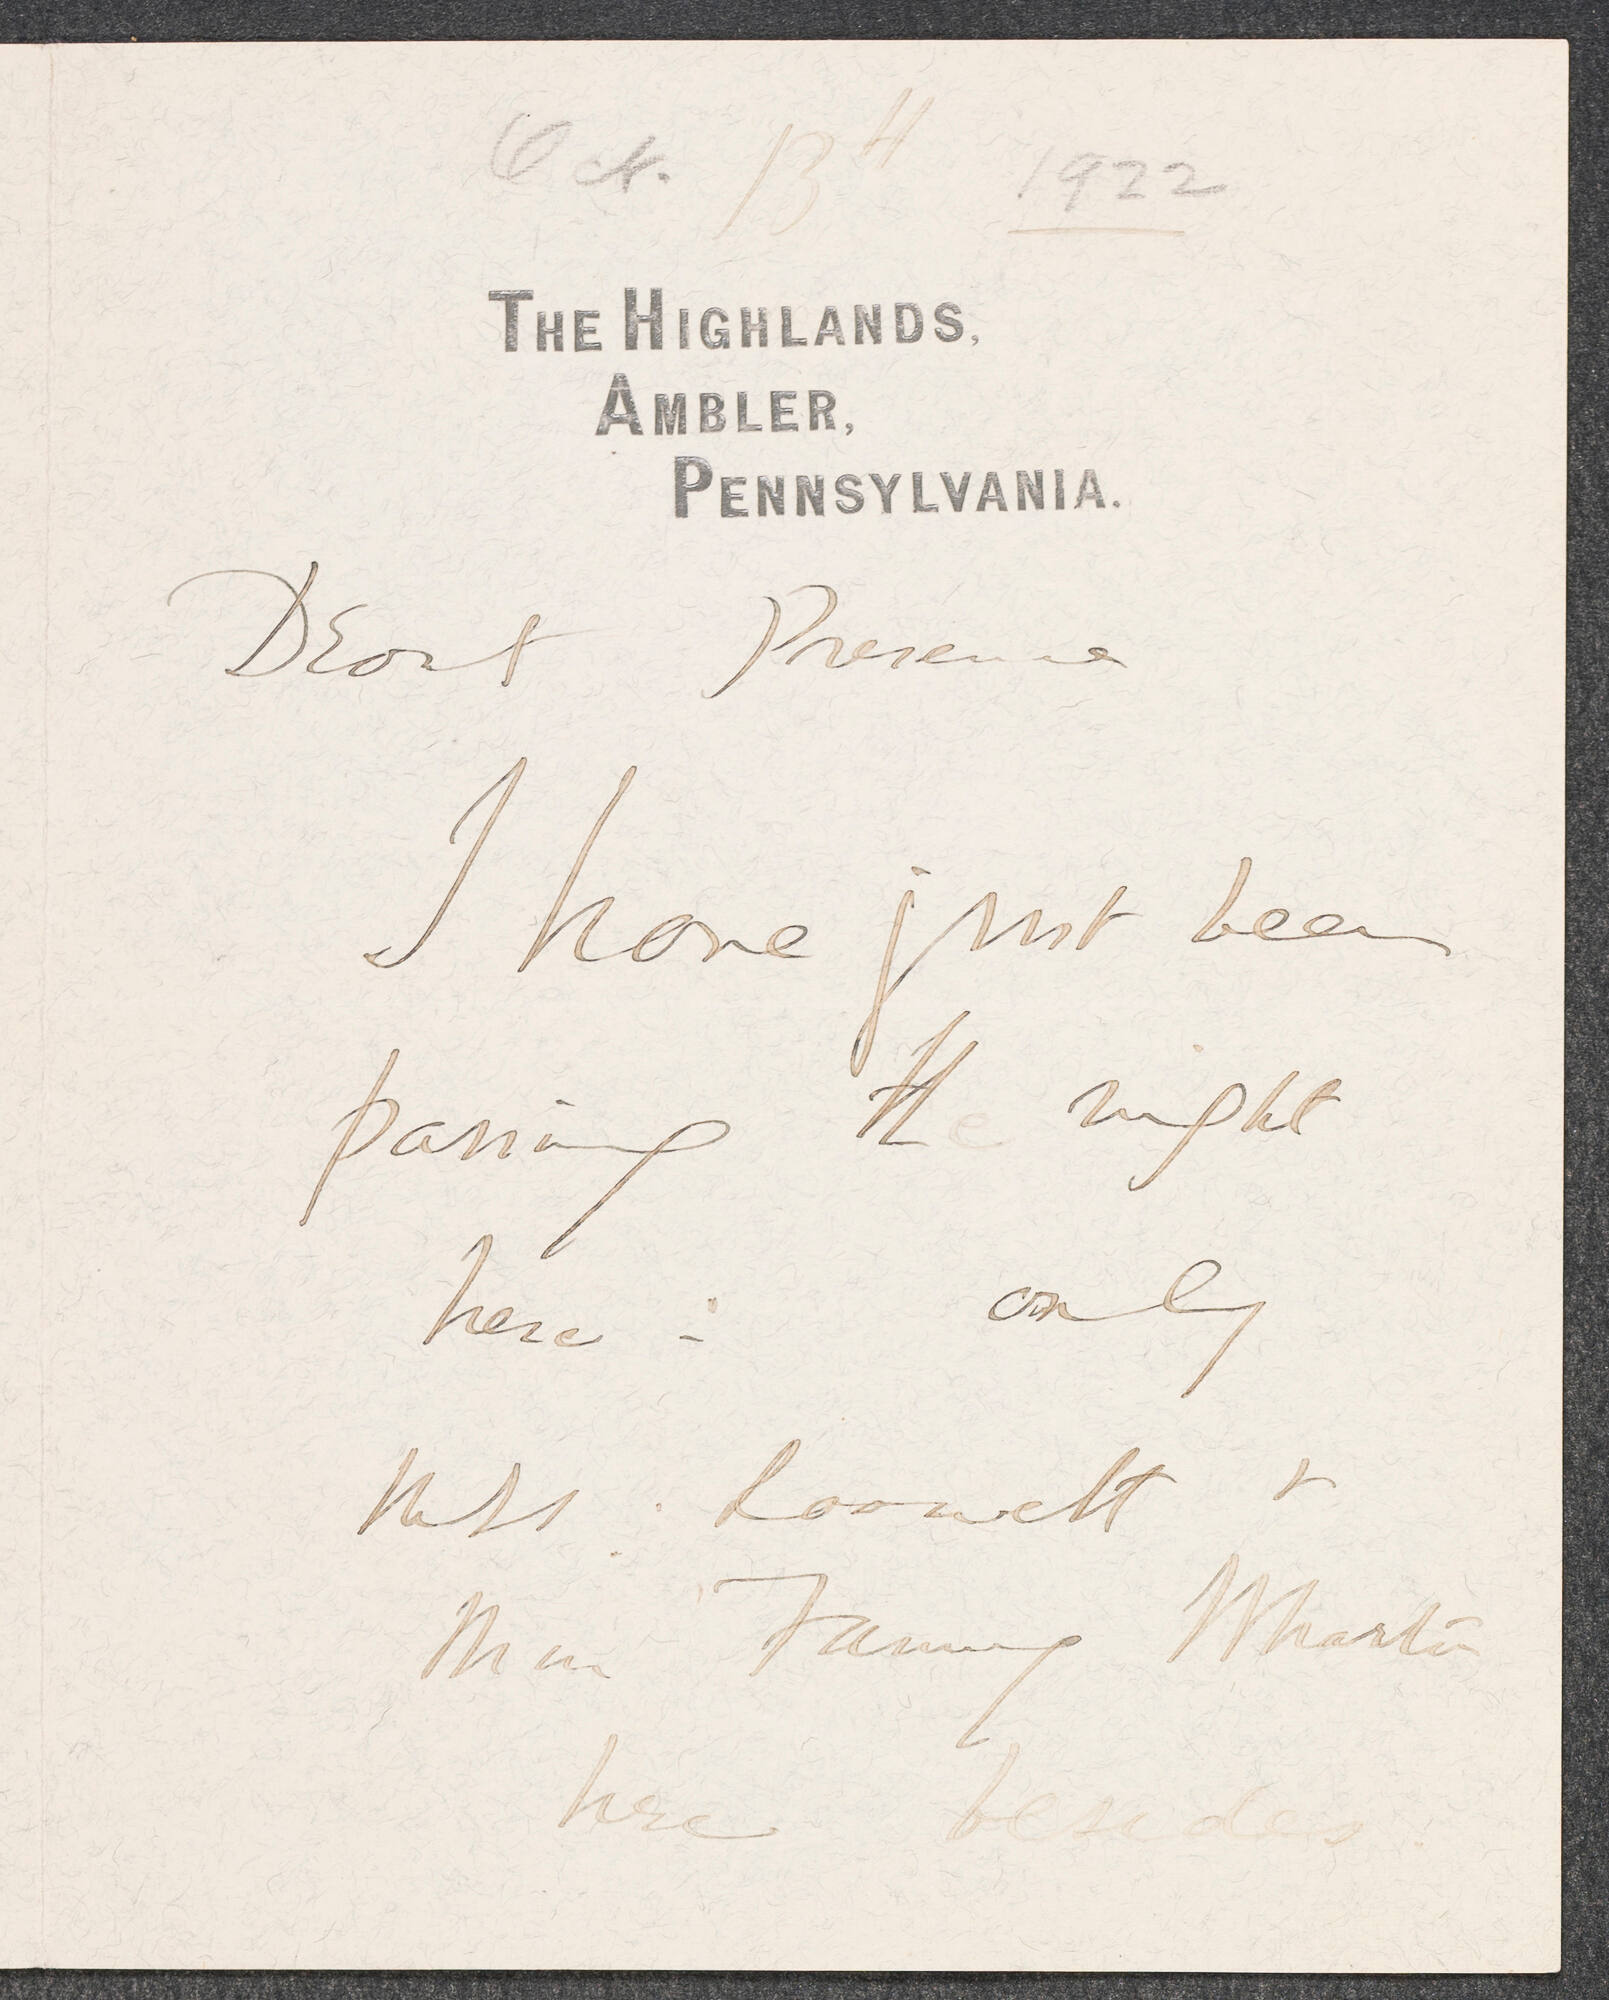 Oct. 13th 1922
THE HIGHLANDS,
AMBLER,
PENNSYLVANIA.
Dearest Presence
I have just been
passing the night
here : only
Mrs. Roosevelt +
Miss Fanny Wharton
here besides.